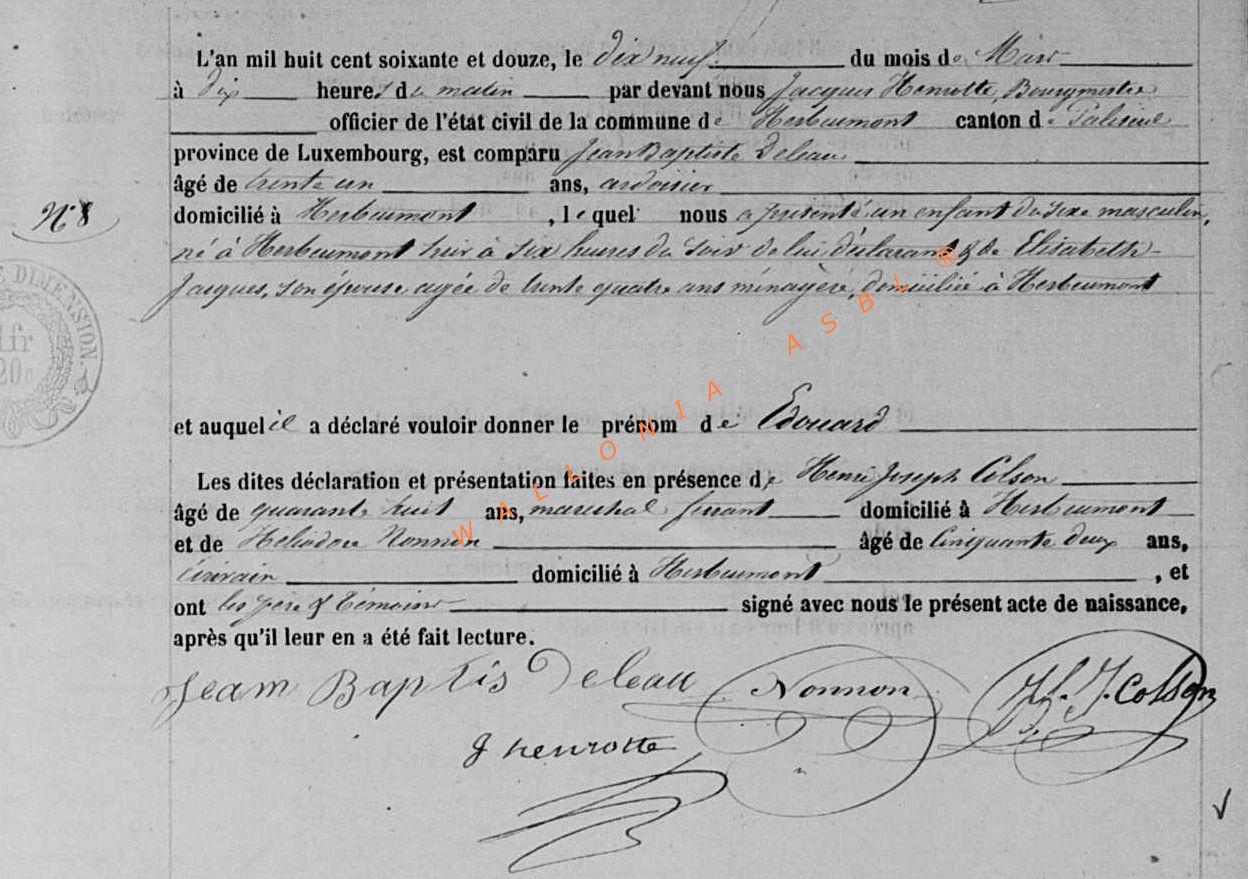 L'an mil huit cent soixante et douze, le dix neuf du mois de Mars
à dix heures du matin par devant nous Jacques Henrotte, Bourgmestre
officier de l'état civil de la commune de Herbeumont canton de Paliseul
province de Luxembourg, est comparu Jean Baptiste Deleau
âgé de trente un ans, ardoisier
N° 8
domicilié à Herbeumont , lequel nous a présenté un enfant du sexe masculin,
né à Herbeumont hier à six heures du soir de lui déclarant & de Elisabeth
Jacques, son épouse agée de trente quatre ans ménagère, domiciliée à Herbeumont
E DIMENSION.
1fr
20c
et auquel il a déclaré vouloir donner le prénom de Edouard
Les dites déclaration et présentation faites en présence de Henri Joseph Colson
âgé de quarante huit ans, marechal ferrant domicilié à Herbeumont
et de Héliodore Nonnon âgé de Cinquante deux ans,
écrivain domicilié à Herbeumont , et
ont les père & témoins signé avec nous le présent acte de naissance,
après qu'il leur en a été fait lecture.
Jean Baptis Deleau Nonnon H. J. Colson
J henrotte
WALLONIA ASBL ®